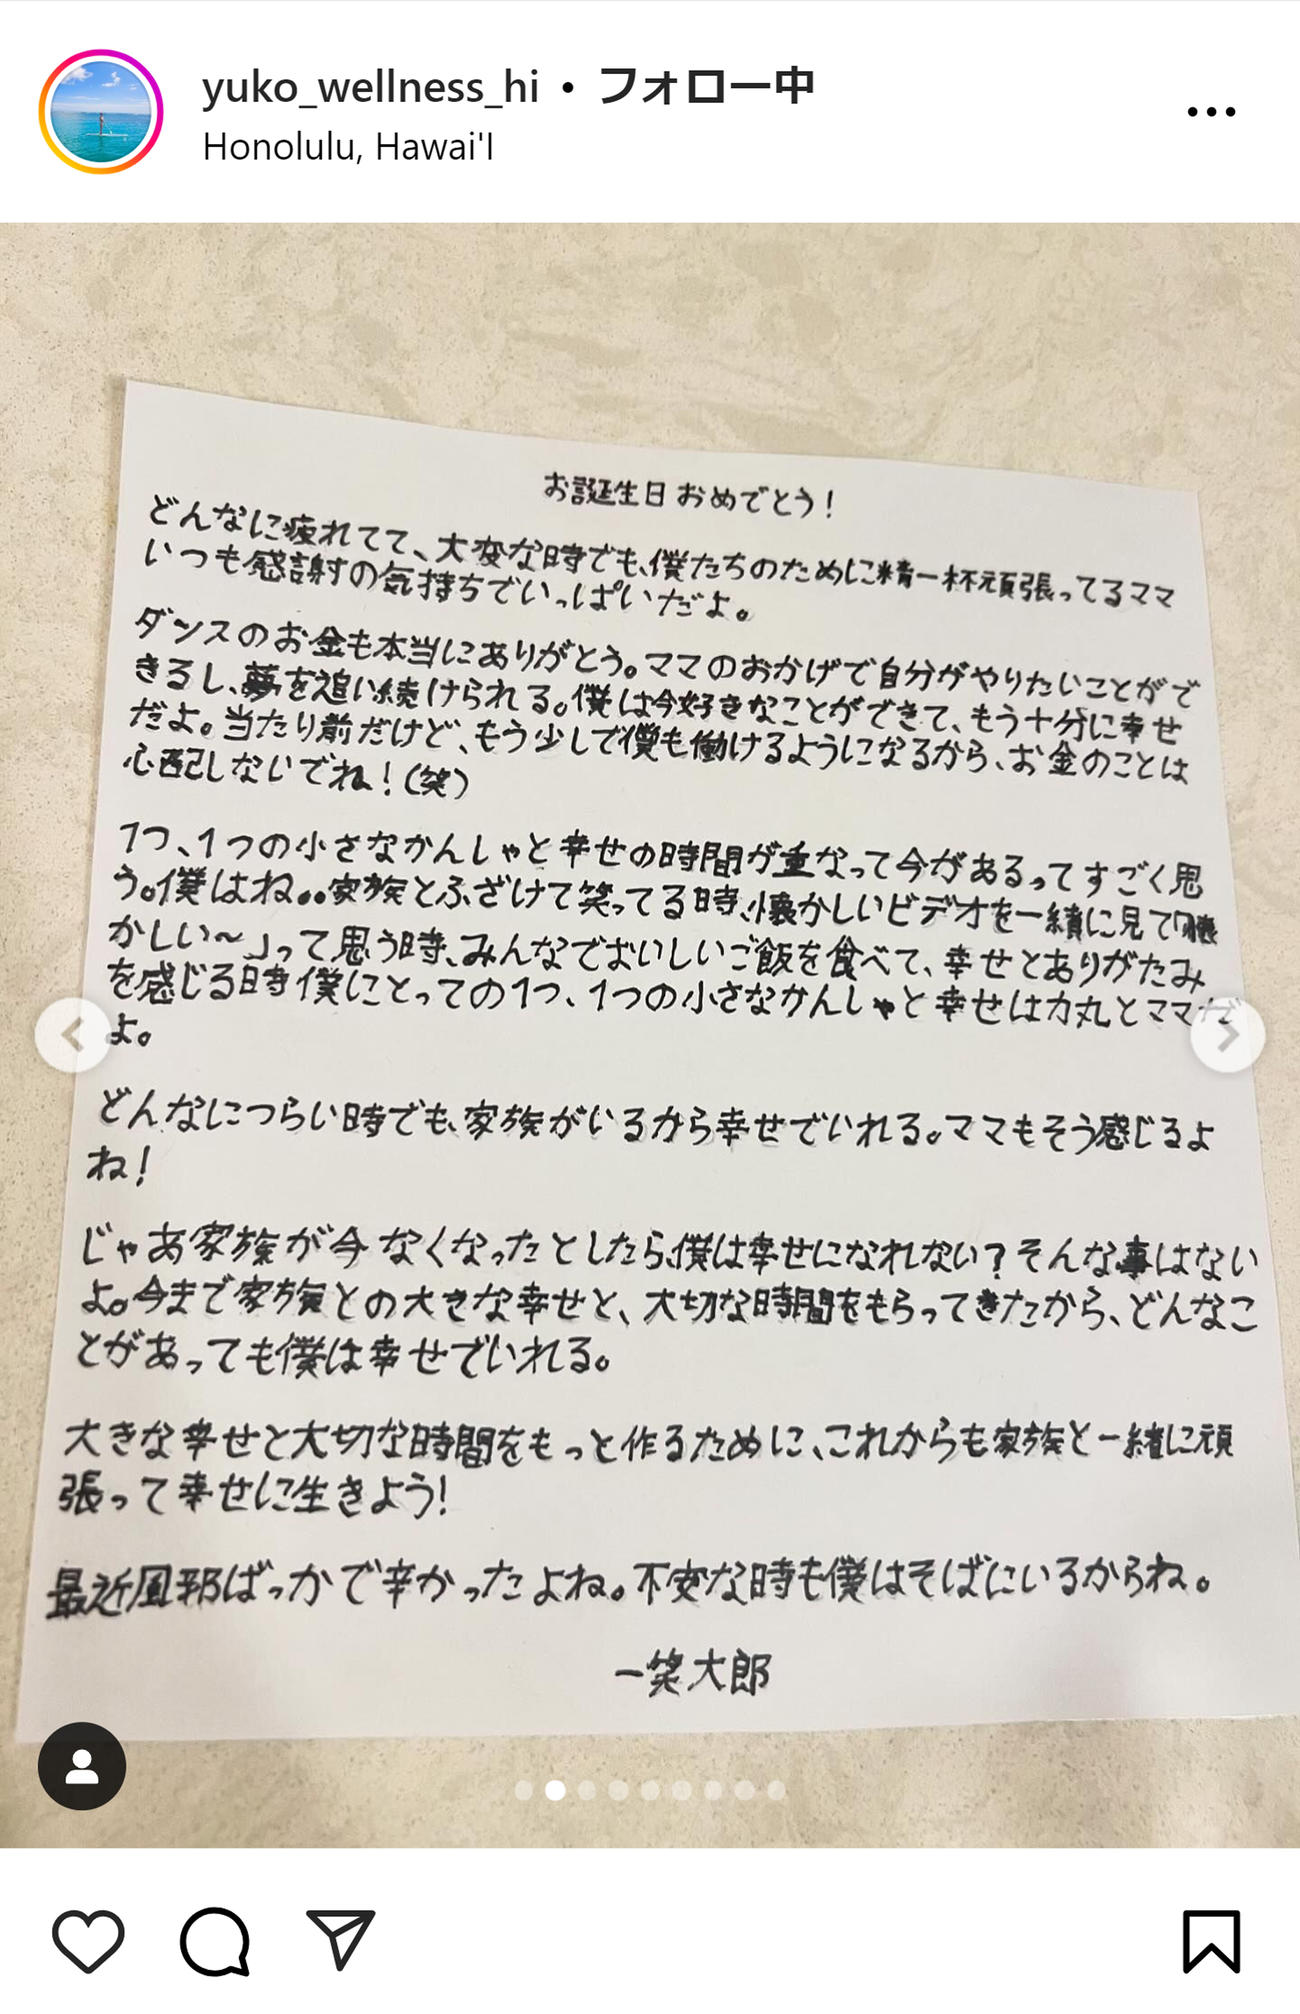 yuko_wellness_hi • フォロー中
Honolulu, Hawai'I
お誕生日おめでとう!
どんなに疲れてて、大変な時でも、僕たちのために精一杯頑張ってるママ
いつも感謝の気持ちでいっぱいだよ。
ダンスのお金も本当にありがとう。ママのおかげで自分がやりたいことがで
きるし、夢を追い続けられる。僕は今好きなことができて、もう十分に幸せ
だよ。当たり前だけど、もう少しで僕も働けるようになるから、お金のことは
心配しないでね!(笑)
1つ、1つの小さなかんしゃと幸せの時間が重なって今があるってすごく思
う。僕はね。。家族とふざけて笑ってる時、懐かしいビデオを一緒に見て「懐
かしい〜」って思う時、みんなでおいしいご飯を食べて、幸せとありがたみ
を感じる時僕にとっての1つ、1つの小さなかんしゃと幸せは力丸とママだ
よ。
どんなにつらい時でも、家族がいるから幸せでいれる。ママもそう感じるよ
ね!
じゃあ家族が今なくなったとしたら、僕は幸せになれない?そんな事はない
よ。今まで家族との大きな幸せと、大切な時間をもらってきたから、どんなこ
とがあっても僕は幸せでいれる。
大きな幸せと大切な時間をもっと作るために、これからも家族と一緒に頑
張って幸せに生きよう!
最近風邪ばっかで辛かったよね。不安な時も僕はそばにいるからね。
一笑大郎